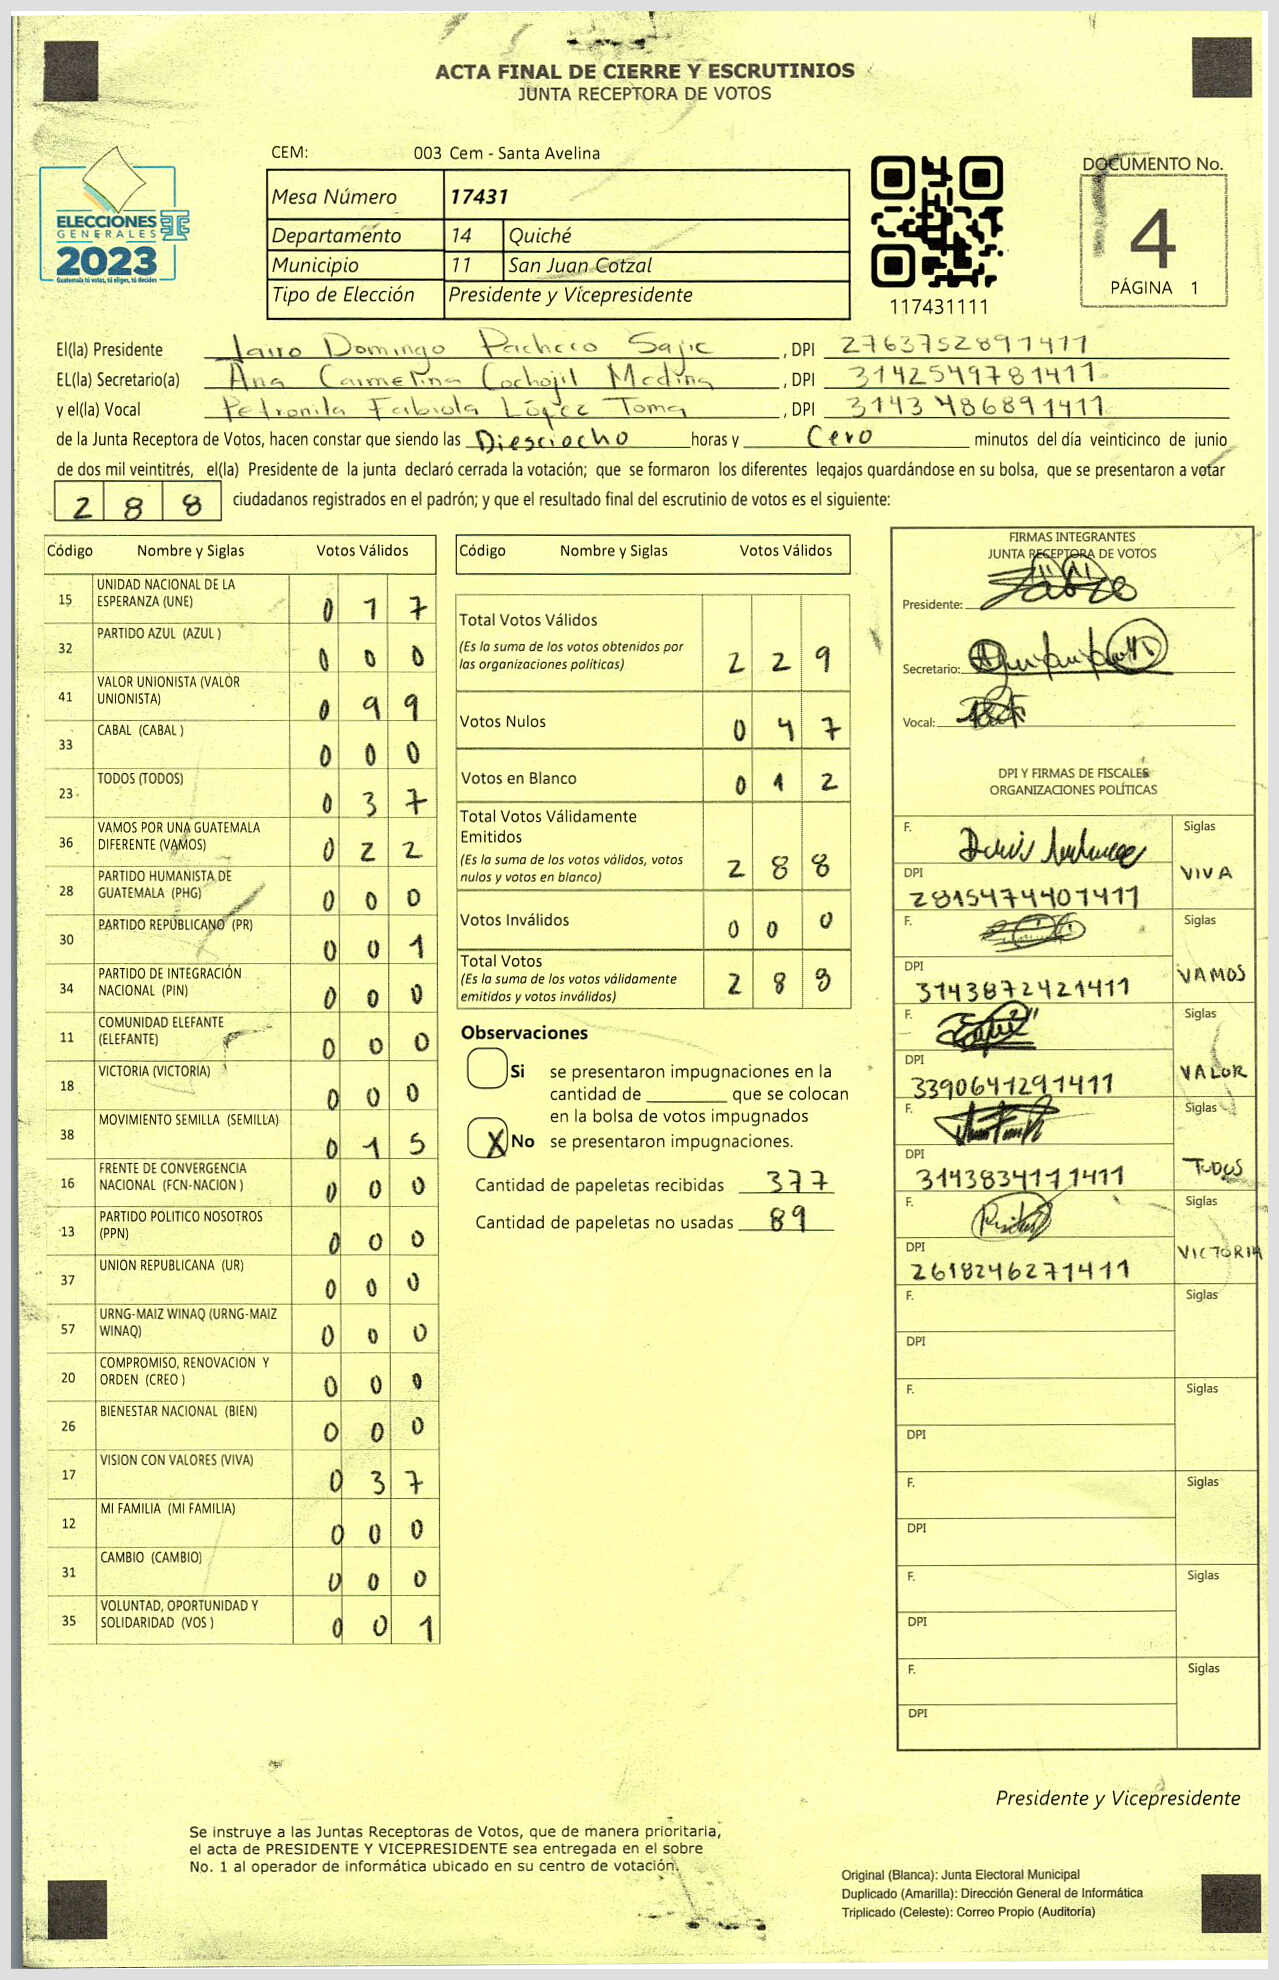 ACTA FINAL DE CIERRE Y ESCRUTINIOS
JUNTA RECEPTORA DE VOTOS
CEM: 003 Cem - Santa Avelina
ELECCIONES
GENERALES
2023
Guatemala tú votas, tú eliges, tú decides
Mesa Número 17431
Departamento 14 Quiché
Municipio 11 San Juan Cotzal
Tipo de Elección Presidente y Vicepresidente
117431111
DOCUMENTO No.
4
PÁGINA 1
El(la) Presidente Jairo Domingo Pacheco Sajic , DPI 2763752891411
EL(la) Secretario(a) Ana Carmelina Cochojil Medina , DPI 3142549781411
y el(la) Vocal Petronila Fabiola López Toma , DPI 3143486891411
de la Junta Receptora de Votos, hacen constar que siendo las Diesciocho horas y Cero minutos del día veinticinco de junio
de dos mil veintitrés, el(la) Presidente de la junta declaró cerrada la votación; que se formaron los diferentes legajos guardándose en su bolsa, que se presentaron a votar
288 ciudadanos registrados en el padrón; y que el resultado final del escrutinio de votos es el siguiente:
Código Nombre y Siglas Votos Válidos
15 UNIDAD NACIONAL DE LA ESPERANZA (UNE) 017
32 PARTIDO AZUL (AZUL ) 000
41 VALOR UNIONISTA (VALOR UNIONISTA) 099
33 CABAL (CABAL ) 000
23 TODOS (TODOS) 037
36 VAMOS POR UNA GUATEMALA DIFERENTE (VAMOS) 022
28 PARTIDO HUMANISTA DE GUATEMALA (PHG) 000
30 PARTIDO REPUBLICANO (PR) 001
34 PARTIDO DE INTEGRACIÓN NACIONAL (PIN) 000
11 COMUNIDAD ELEFANTE (ELEFANTE) 000
18 VICTORIA (VICTORIA) 000
38 MOVIMIENTO SEMILLA (SEMILLA) 015
16 FRENTE DE CONVERGENCIA NACIONAL (FCN-NACION ) 000
13 PARTIDO POLITICO NOSOTROS (PPN) 000
37 UNION REPUBLICANA (UR) 000
57 URNG-MAIZ WINAQ (URNG-MAIZ WINAQ) 000
20 COMPROMISO, RENOVACION Y ORDEN (CREO ) 000
26 BIENESTAR NACIONAL (BIEN) 000
17 VISION CON VALORES (VIVA) 037
12 MI FAMILIA (MI FAMILIA) 000
31 CAMBIO (CAMBIO) 000
35 VOLUNTAD, OPORTUNIDAD Y SOLIDARIDAD (VOS ) 001
Código Nombre y Siglas Votos Válidos
Total Votos Válidos 229
(Es la suma de los votos obtenidos por
las organizaciones políticas)
Votos Nulos 047
Votos en Blanco 012
Total Votos Válidamente
Emitidos 288
(Es la suma de los votos válidos, votos
nulos y votos en blanco)
Votos Inválidos 000
Total Votos 288
(Es la suma de los votos válidamente
emitidos y votos inválidos)
Observaciones
Si se presentaron impugnaciones en la
cantidad de ________ que se colocan
en la bolsa de votos impugnados
X No se presentaron impugnaciones.
Cantidad de papeletas recibidas 377
Cantidad de papeletas no usadas 89
FIRMAS INTEGRANTES
JUNTA RECEPTORA DE VOTOS
Presidente:
Secretario:
Vocal:
DPI Y FIRMAS DE FISCALES
ORGANIZACIONES POLÍTICAS
F. Siglas
DPI VIVA
2815474401411
F. Siglas
DPI VAMOS
3143872421411
F. Siglas
DPI VALOR
3390641291411
F. Siglas
DPI TODOS
3143834171411
F. Siglas
DPI VICTORIA
2618246271411
F. Siglas
DPI
F. Siglas
DPI
F. Siglas
DPI
F. Siglas
DPI
F. Siglas
DPI
Presidente y Vicepresidente
Se instruye a las Juntas Receptoras de Votos, que de manera prioritaria,
el acta de PRESIDENTE Y VICEPRESIDENTE sea entregada en el sobre
No. 1 al operador de informática ubicado en su centro de votación.
Original (Blanca): Junta Electoral Municipal
Duplicado (Amarilla): Dirección General de Informática
Triplicado (Celeste): Correo Propio (Auditoría)